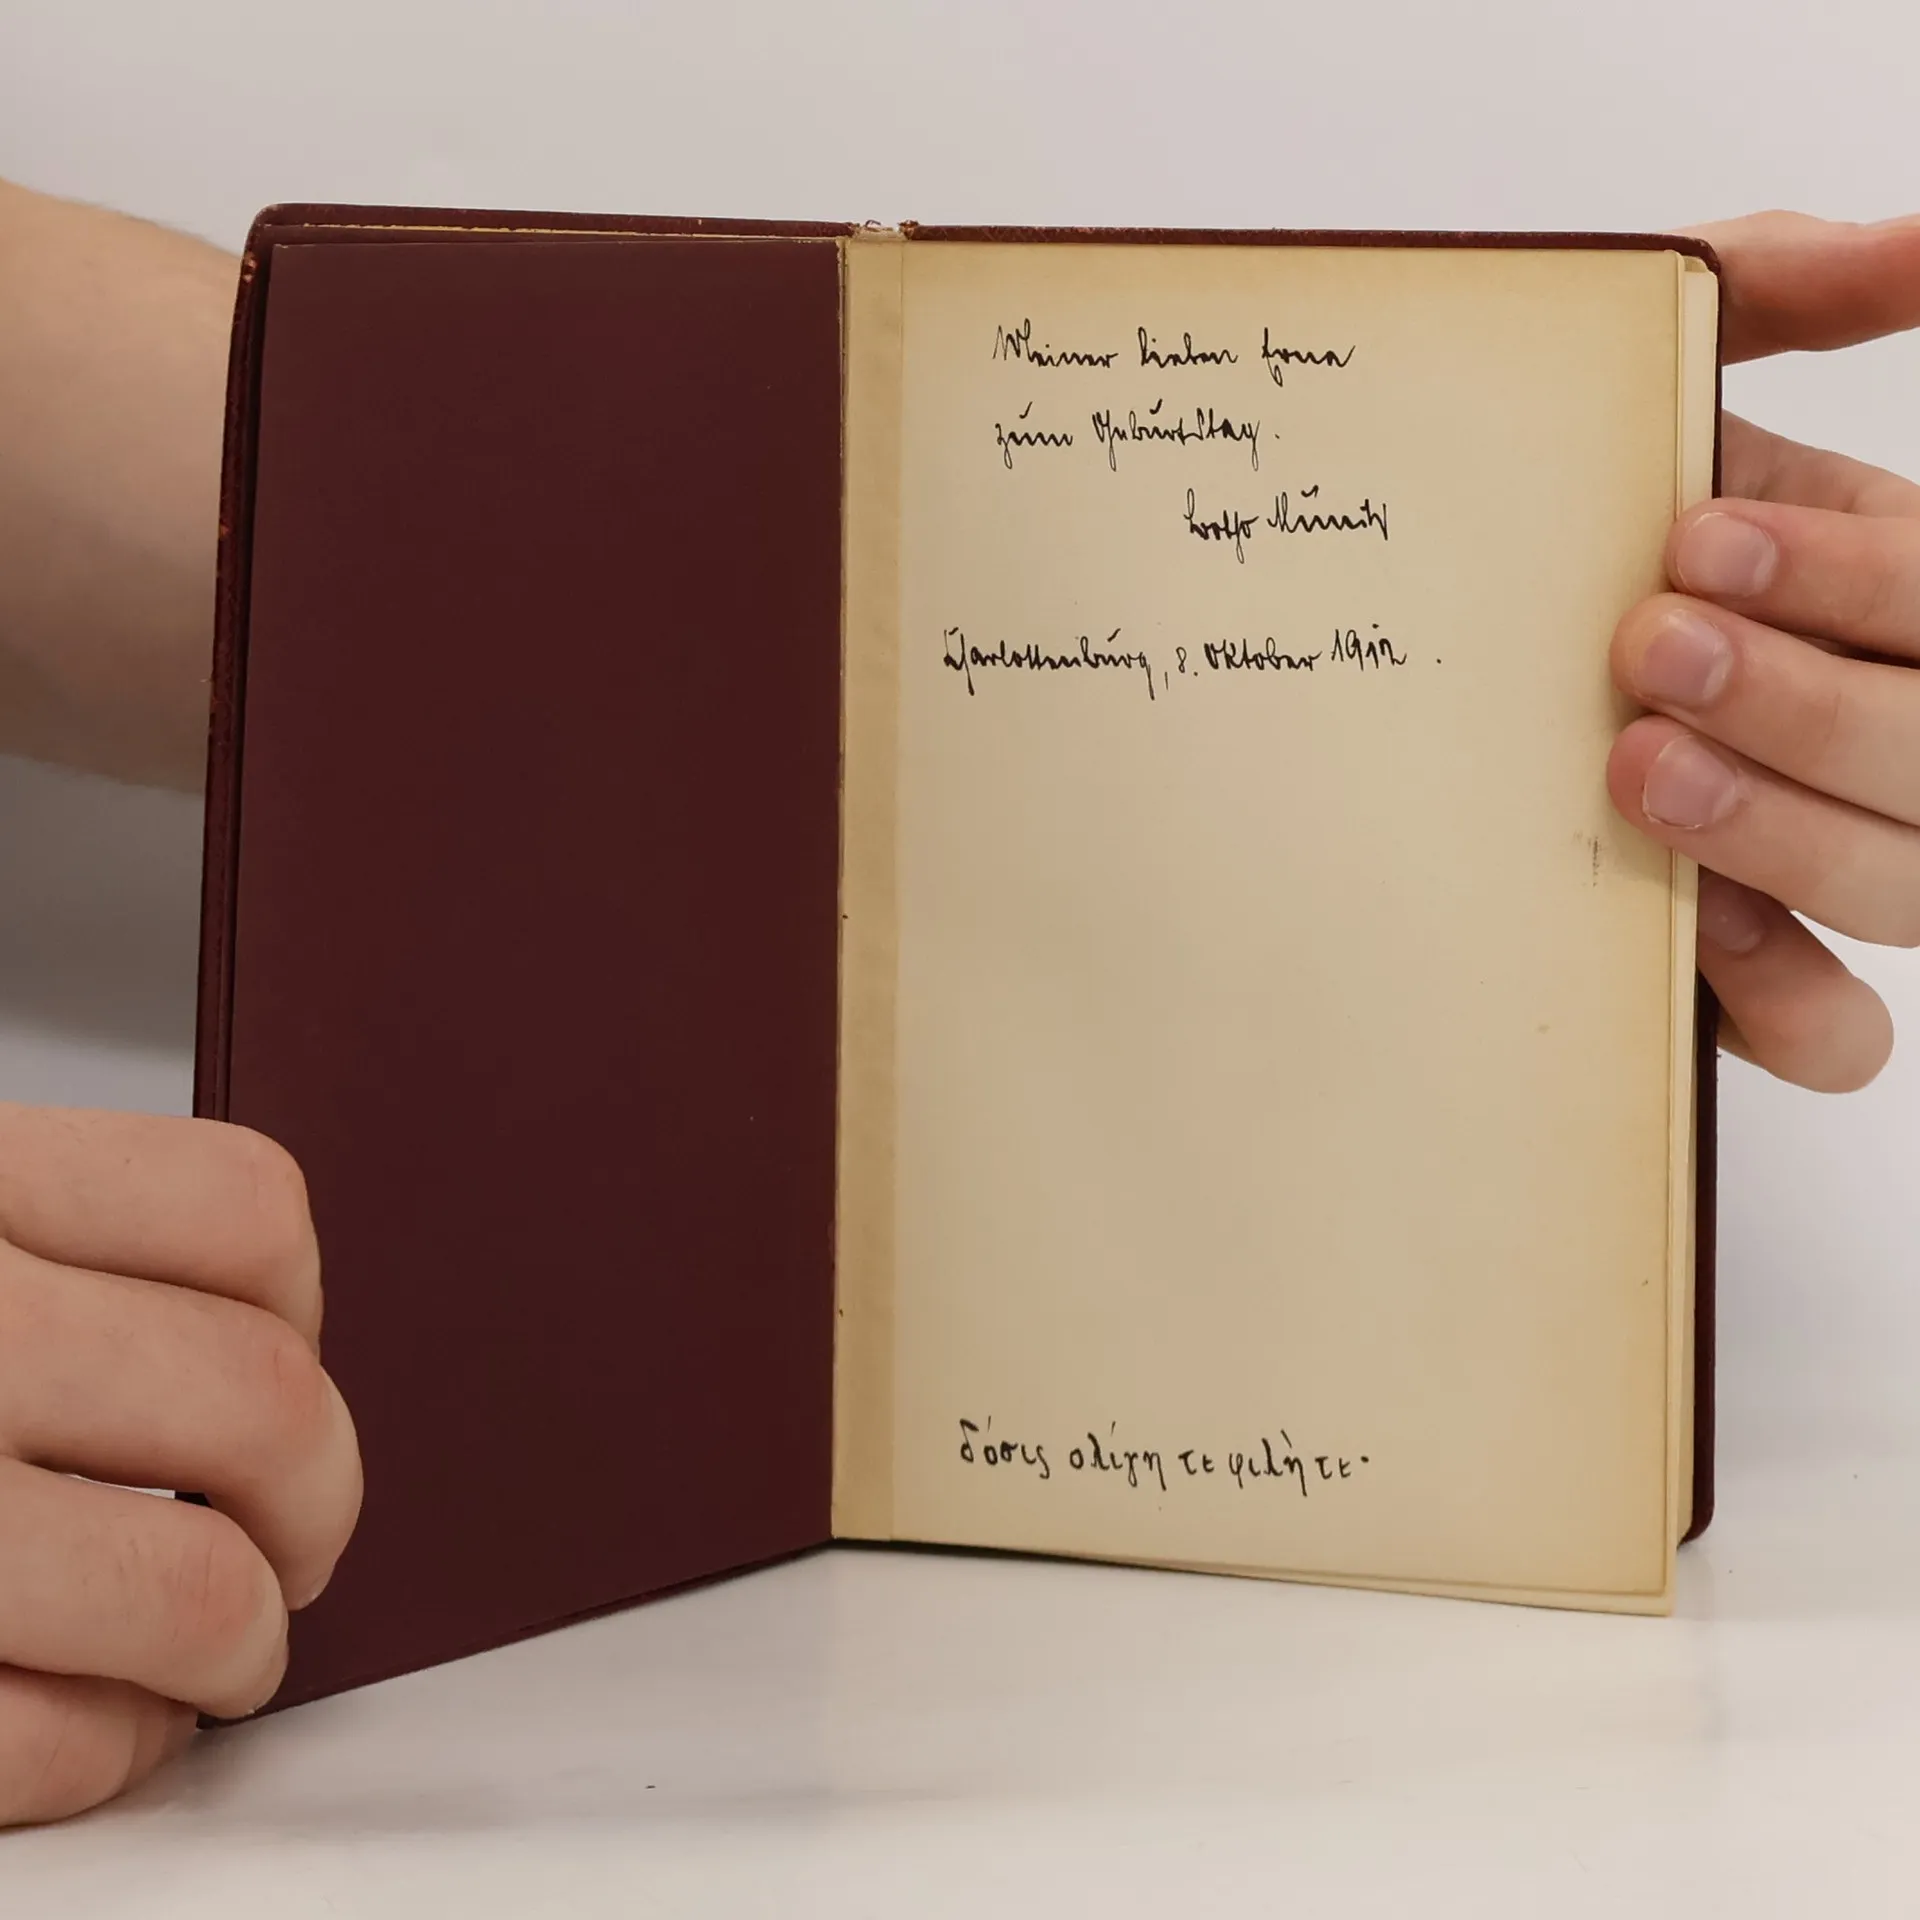 Meiner lieben Erna
zum Geburtstag.
Botho
Charlottenburg, 8. Oktober 1912.
δόσις ολίγη τε φιλὴ τε·